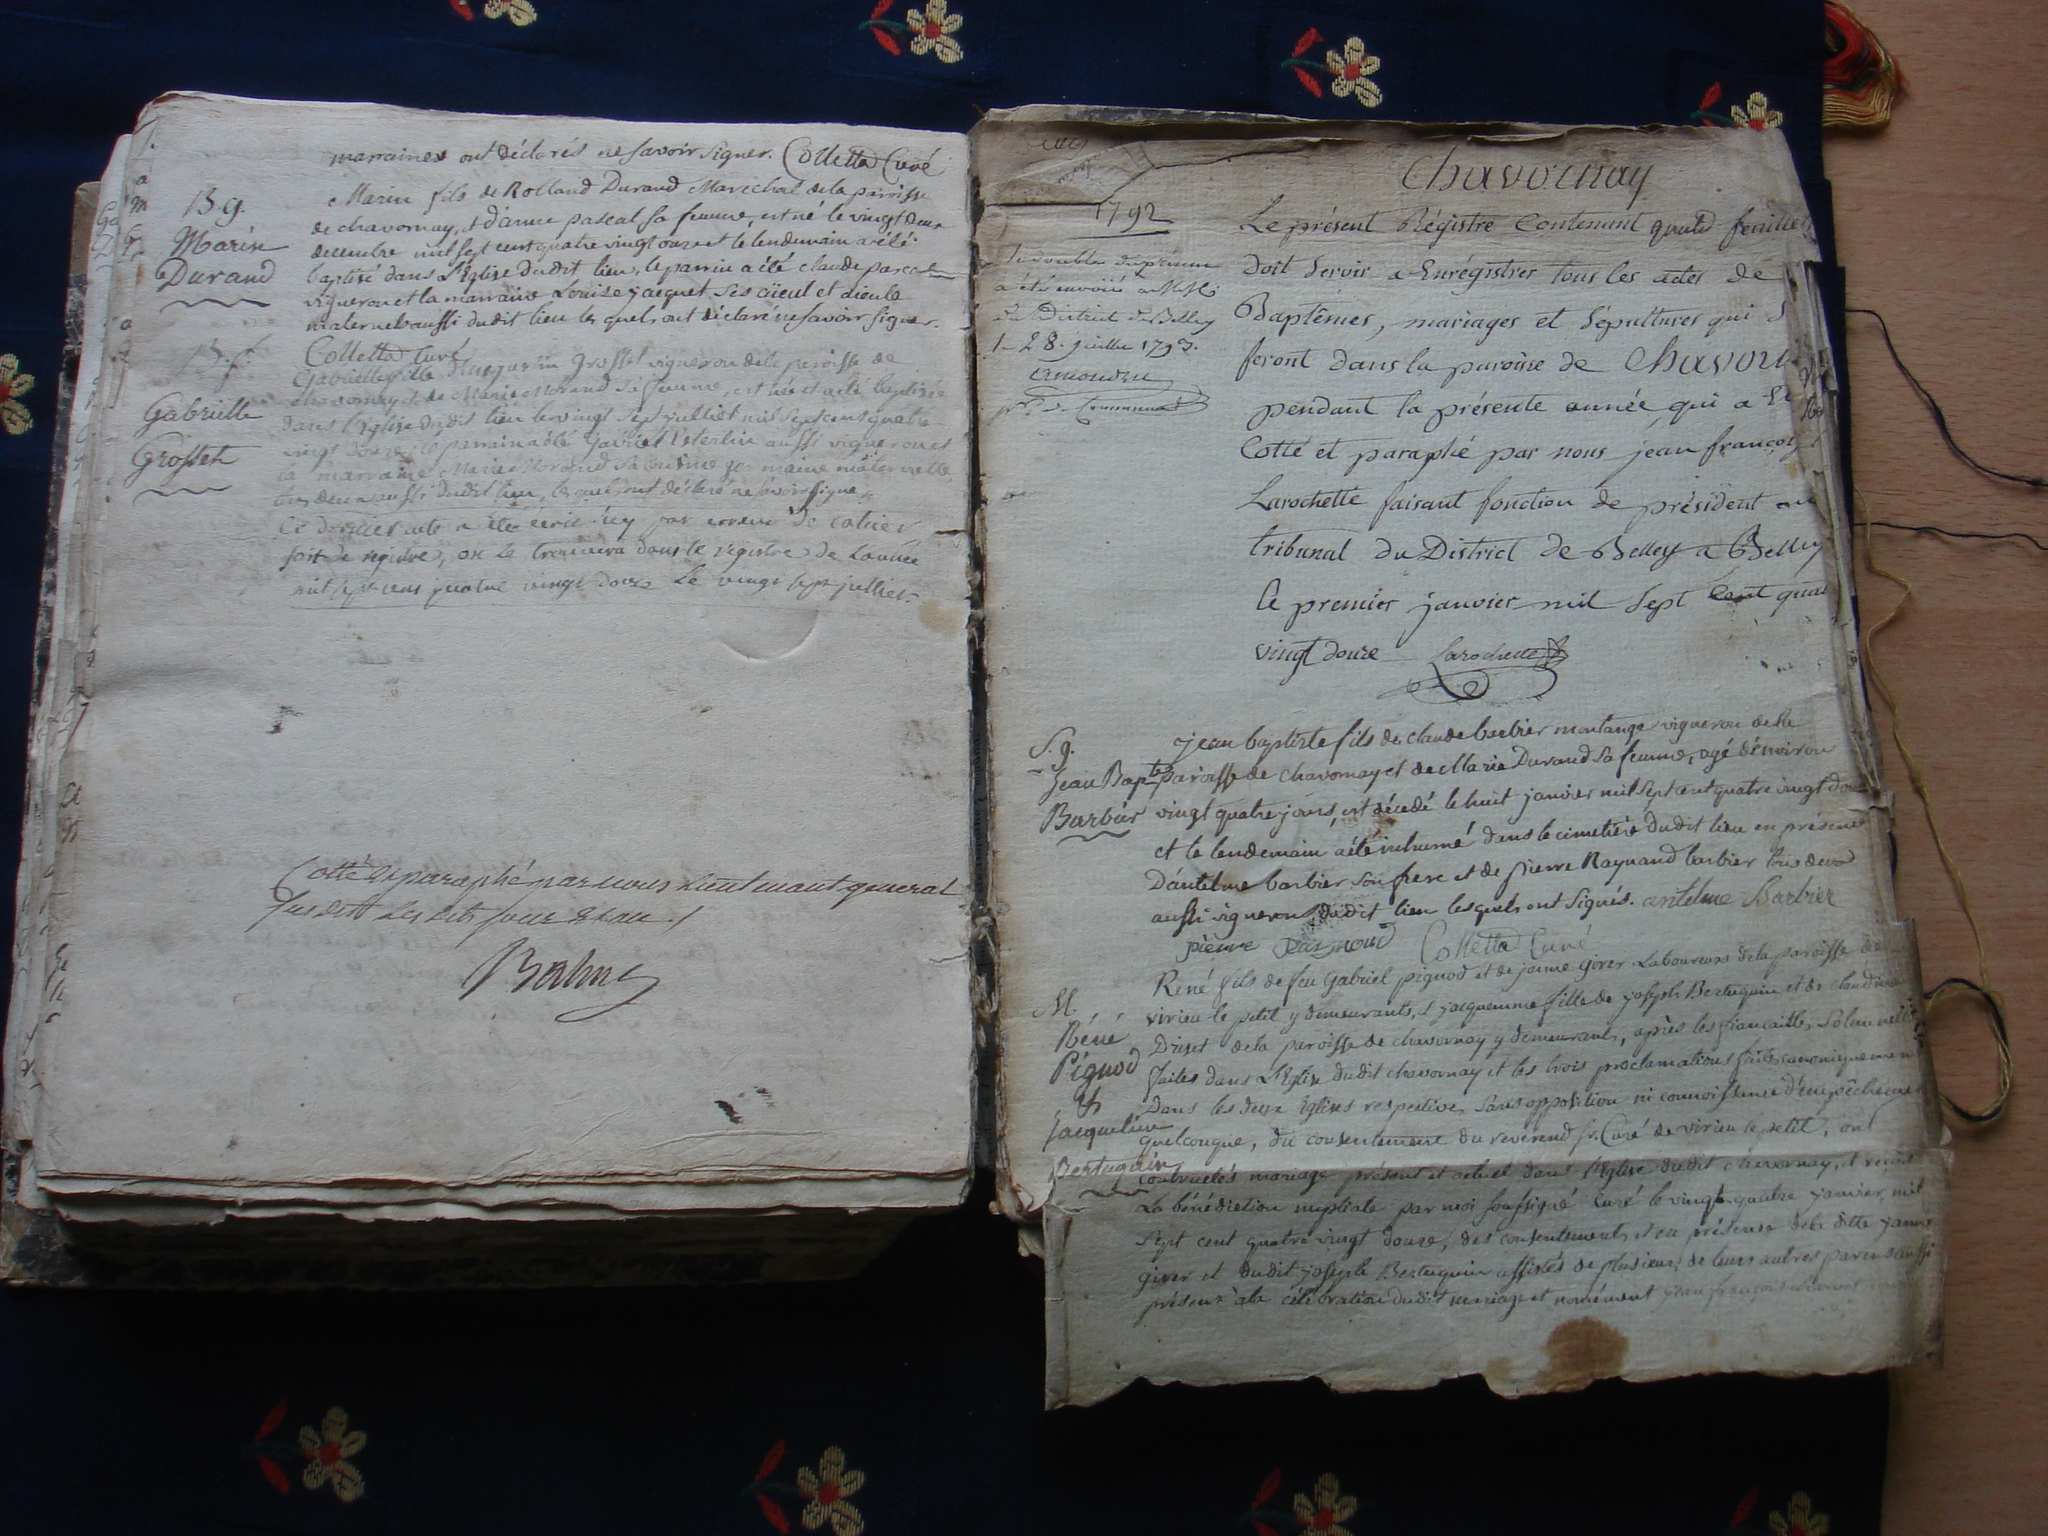 marraines ont déclarés ne savoir signer. Colletta Curé
B g.
Marin
Durand
Marin fils de Rolland Durand Marechal de la paroisse
de chavornay, et d'anne pascal sa femme, est né le vingt deux
decembre mil sept cent quatre vingt onze et le lendemain a été
baptisé dans L'Eglise dudit lieu, le parrin a été claude pascal
vigneron et la marraine Louise jacquet ses aïeul et aieule
maternels aussi dudit lieu les quels ont déclaré ne savoir signer.
Colletta Curé
B. f.
Gabrielle
Grosset
Gabrielle fille d'augustin Grosset vigneron de la paroisse de
chavornay et de Marie Morand sa femme, est née et a été baptisée
dans l'Eglise dudit lieu le vingt sept julliet mil sept cent quatre
vingt douze, le parrain a été Gabriel aussi vigneron et
la marraine Marie Morand sa cousine germaine maternelle
tous deux aussi dudit lieu, les quels ont déclaré ne savoir signer
Ce dernier acte a été écrit icy par erreur de cahier
soit de registre, on le trouvera dans le registre de l'année
mil sept cens quatre vingt douze le vingt sept julliet.
Cotté et paraphé par nous Lieutenant general
susdit les dits jour et an
Balme
Chavornay
1792
Le présent Régistre Contenant feuillet
doit servir a Enrégistrer tous les actes de
Baptêmes, mariages et sépultures qui s
feront dans la paroisse de Chavorn
pendant la présente année, qui a
Cotté et paraphé par nous jean françois
Larochette faisant fonction de président au
tribunal du District de Belley a Belley
le premier janvier mil sept Cent quat
vingt douze Larochette
le double du présent
a été envoié
District de Belley
28. juillet 1793.
S. g.
Jean Bapte
Barbier
jean baptiste fils de claude barbier montange vigneron de la
paroisse de chavornay et de Marie Durand sa femme, agé d'environ
vingt quatre jours, est décédé le huit janvier mil sept cent quatre vingt douze
et le lendemain a été inhumé dans le cimetière dudit lieu en présence
d'antelme barbier son frere et de pierre Raymand barbier tous deux
aussi vignerons dudit lieu lesquels ont signés. antelme Barbier
pierre Raymond Colletta Curé
M.
Réné
Pignod
&
jacqueline
Bertuquin
René fils de feu Gabriel pignod et de janne girer Laboureurs de la paroisse de
virieu le petit y demeurants, et jacquemme fille de joseph Bertuquin et de claudine
de la paroisse de chavornay y demeurants, après les fiançailles solemnelles
faites dans L'Eglise dudit chavornay et les trois proclamations faites canoniquement
dans les deux Eglises respectives sans opposition ni connoissance d'empêchement
quelconque, du consentement du reverend sr. Curé de virieu le petit, ont
contractés mariage présent et actuel dans l'Eglise dudit chavornay, et reçu
La bénédiction nuptiale par moi soussigné Curé le vingt quatre janvier, mil
sept cent quatre vingt douze, des consentements et en présence de la ditte janne
girer et dudit joseph Bertuquin assistés de plusieurs de leurs autres parens aussi
présens à la célébration dudit mariage et nomément jean françois